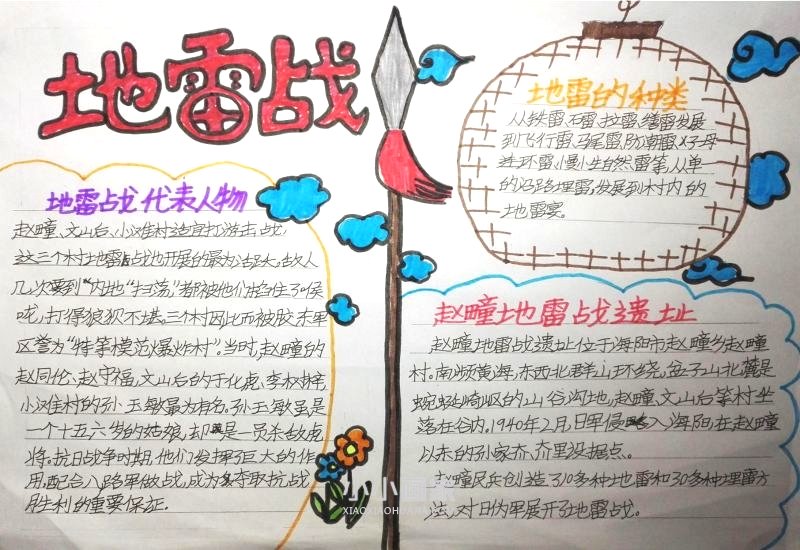 地雷战
地雷战代表人物
赵疃、文山后、小滩村造雷打游击战,
这三个村地雷战地开展的最为活跃,敌人
几次要到“内地”扫荡,”都被他们掐住了喉
咙,打得狼狈不堪。三个村因此而被胶东军
区誉为“特等模范爆炸村”。当时,赵疃的
赵同伦、赵守福,文山后的于化虎、李权
小滩村的孙玉敏最为有名。孙玉敏虽是
一个十五六岁的姑娘,却是一员杀敌虎
将。抗日战争时期,他们发挥了巨大的作
用,配合八路军做战,成为夺取抗战
胜利的重要保证.
地雷的种类
从铁雷、石雷、拉雷、绊雷发展
到飞行雷、马尾雷、防潮雷、子母
连环雷、慢性自然雷等,从单一
的沿路埋雷,发展到村内的
地雷宴。
赵疃地雷战遗址
赵疃地雷战遗址位于海阳市赵疃乡赵疃
村。南频黄海,东西北群山环绕,盆子山北麓是
蜿蜒崎岖的山谷沟地,赵疃、文山后等村坐
落在谷内。1940年2月,日军侵入海阳,在赵疃
以东的孙家夼、夼里设据点。
赵疃民兵创造了10多种地雷和30多种埋雷方
法,对日伪军展开了地雷战。
小小画家